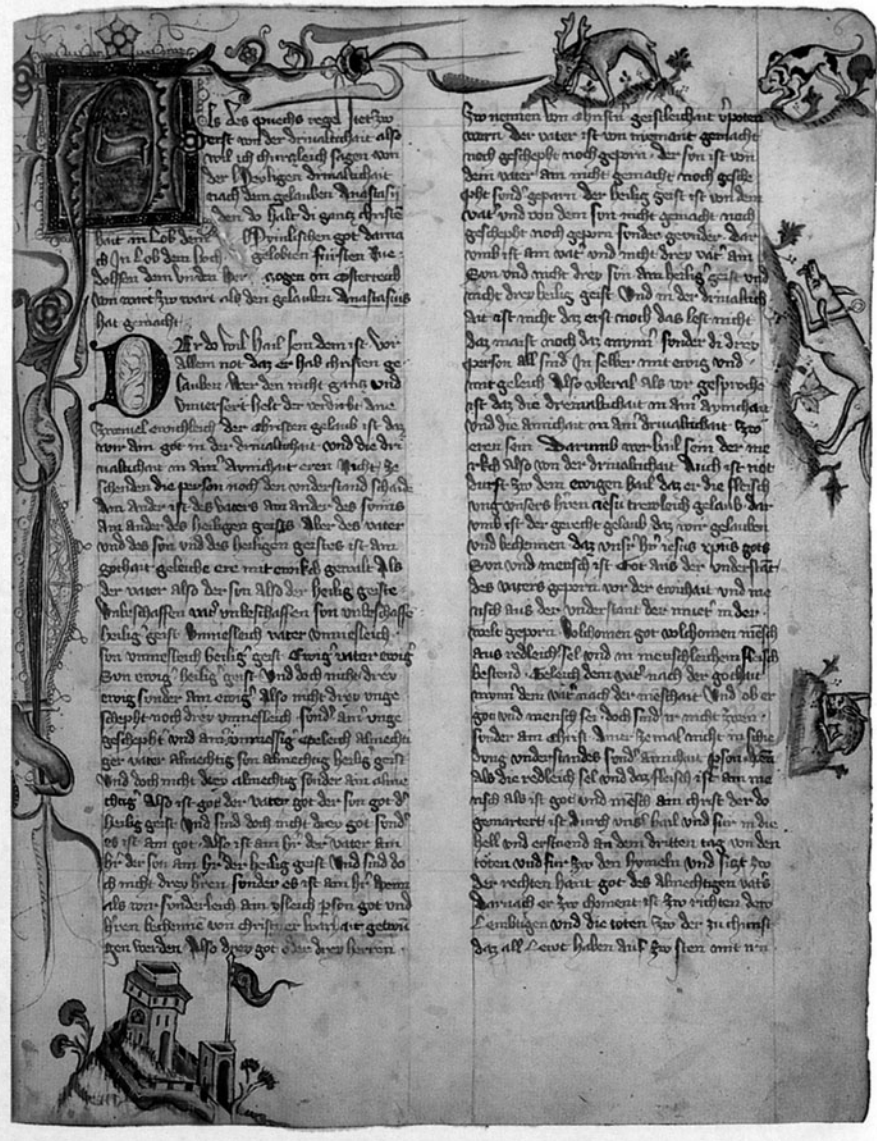 Als des puechs regel hiet zw
erst von der drivaltichait also
wil ich churczleich sagen von
der heyligen drivaltichait
nach dem gelauben Anastasij
den do halt di gancz christen
hait in lob dem himlischen got darna
ch in lob dem hoch gelobten fürsten Rue
dolffen dem vierden herczogen in Osterreich
von wart zw wart als den gelauben Anastasius
hat gemacht
Wer do wil hail sein dem ist vor
allem not daz er hab christen ge
lauben Wer den nicht gancz vnd
vnuersert helt der verdirbt ane
zweiuel ewichleich der christen gelaub ist daz
wir ain got in der drivaltichait vnd die dri
ualtichait in ainr ainichait eren Nicht ze
schenden die person noch den vnderstand schaide
Ain ander ist des vaters ain ander des sonns
ain ander des heiligen geists Aber des vater
vnd des son vnd des heiligen geistes ist ain
gothait geleiche ere mit ewikch gewalt Als
der vater also der son also der heilig geiste
Vnbeschaffen vatr vnbeschaffen son vnbeschaffe
heilig geist Vnmesleich vater vnmesleich
son vnmesleich heilig geist Ewigr vater ewigr
Son ewigr heilig geist Vnd doch nicht drey
ewig sunder ain ewigr Also nicht drey vnge
schepht noch drey vnmesleich sundr ainr vnge
geschepht vnd ainr vnmessig Geleich almechti
ger vater almechtig son almechtig heilig geist
Vnd doch nicht drey almechtig sunder ain alme
chtigr Also ist got der vater got der son got dr
heilig geist Vnd sind doch nicht drey got sundr
es ist ain got Also ist ain hr der vater ain
hr der son ain hr der heilig geist Vnd sind do
ch nicht drey hren sunder es ist ain hr Wenn
als wir sunderleich ain ysleich pson got vnd
hren bechennen von christner warhait getwu
gen werden Also drey got oder drey herren
Zw nennen von christn geistleichait vpoten
warn der vater ist von niemant gemacht
noch geschepht noch geporn der son ist von
dem vater ain nicht gemacht noch gesche
pht sundr geparn der heilig geist ist von dem
vatr vnd von dem son nicht gemacht noch
geschepht noch geporn sunder Dar
vmb ist ain vatr vnd nicht drey vatr ain
Son vnd nicht drey son ain heiligr geist vnd
nicht drey heilig geist Vnd in der drivaltich
ait ist nicht daz erst noch das lest nicht
daz maist noch daz mynnr sunder di drey
person all sind in selber mit ewig vnd
mit geleich Also vberal als vor gesproche
ist daz die dreiualtichait in ainr aynichait
vnd die ainichait in ainr drivaltichait zw
eren sein Darumb wer hail sein der me
rkch also von der drivaltichait Auch ist not
durft zw dem ewigen hail daz er die fleisch
ung vnsers hren iesu trewleich gelaub dar
vmb ist der gerecht gelaub daz wir gelauben
vnd bechennen daz vnsr hr iesus xpus gots
Son vnd mensch ist Got aus der vnderstant
des vaters geporn vor der ewichait vnd me
nsch aus der vnderstant der muetr in der
welt geporn Volchomen got volchomen mesch
aus redleichr sel vnd in menschleichem fleisch
bestend Geleich dem vatr nach der gothait
mynnr dem vatr nach der meschait Vnd ob er
got vnd mensch sei doch sind ir nicht zwen
sunder ain Christ Ainer ze mal nicht in schie
dung vnderstandes sundr ainichait pson
als die redleich sel vnd daz fleisch ist ain me
nsch als ist got vnd mesch ain christ der do
gemartert ist durch vnsr hail vnd fur in die
hell vnd erstuend an dem dritten tag von den
toten vnd für zw den hymeln vnd sizt zw
der rechten hant got des almechtigen vats
Darnach er zw choment ist zw richten dew
Lembtigen vnd die toten zw der zuchunft
daz all lewt haben auf zw sten mit irn